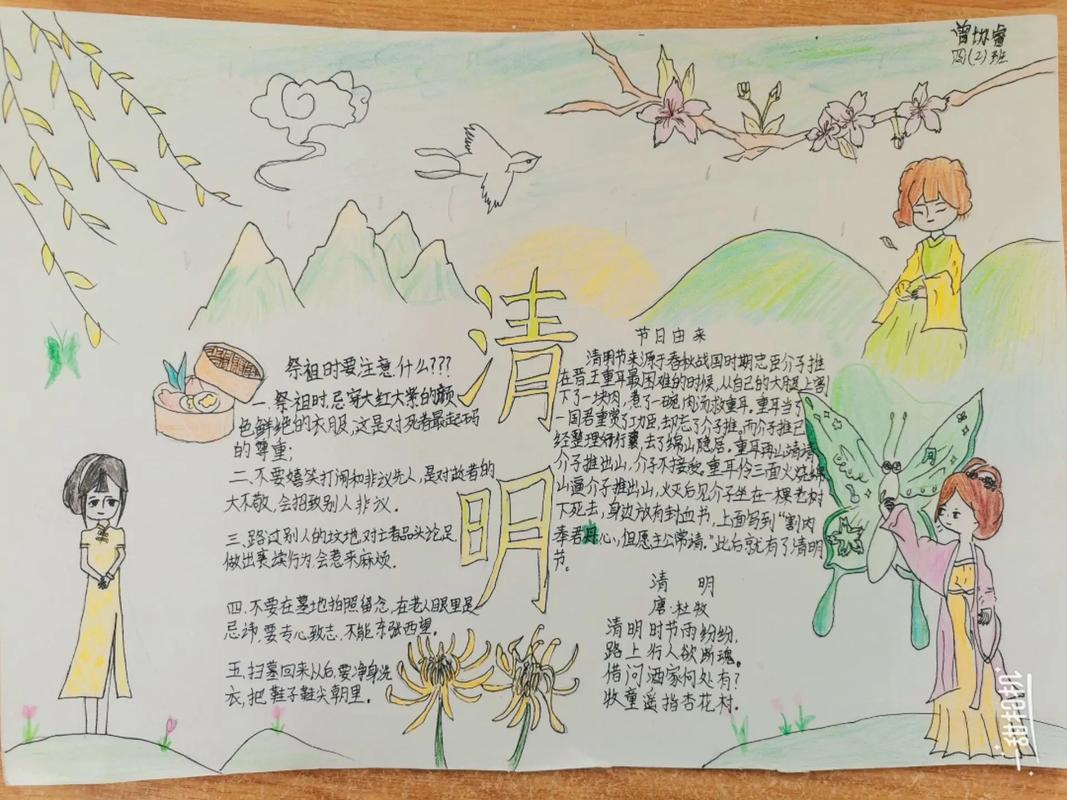 曾协睿
四(2)班
清明
祭祖时要注意什么???
一.祭祖时,忌穿大红大紫的颜
色鲜艳的衣服,这是对死者最起码
的尊重;
二.不要嬉笑打闹和非议先人,是对故者的
大不敬,会招致别人非议.
三.路过别人的坟地,对土者品头论足
做出亵渎行为,会惹来麻烦.
四.不要在墓地拍照留念,在老人眼里是
忌讳,要专心致志,不能东张西望.
五.扫墓回来以后,要净身洗
衣,把鞋子鞋尖朝里.
节日由来
清明节来源于春秋战国时期忠臣介子推
在晋王重耳最困难的时候,从自己的大腿上割
下了一块肉,煮了一碗肉汤救重耳。重耳当了
一国君重赏了功臣,却忘了介子推。而介子推已
经整理好行囊,去了绵山隐居。重耳再山请请
介子推出山,介子不接受。重耳伶三面火烧绵
山逼介子推出山,火灭后见介子坐在一棵老树
下死去,身边放有封血书,上面写到“割肉
奉君丹心,但愿主公常清。”此后就有了清明
节。
清 明
唐·杜牧
清明时节雨纷纷,
路上行人欲断魂。
借问酒家何处有?
牧童遥指杏花村.